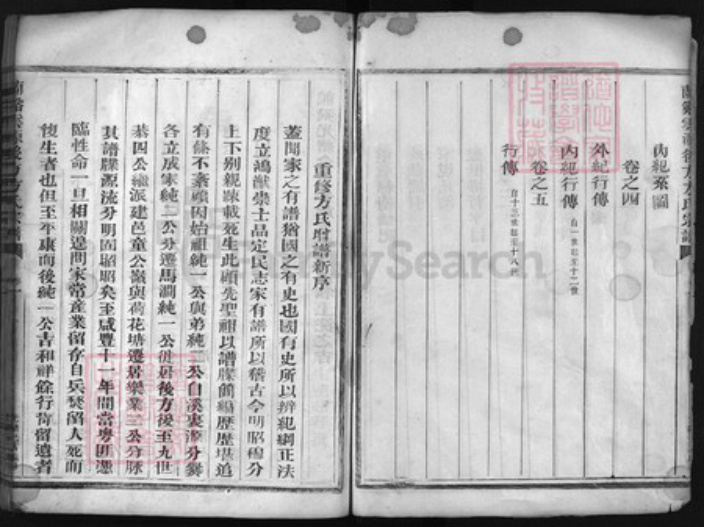 內紀系圖
卷之四
外紀行傳
內紀行傳 自一世起至十二世
卷之五
行傳 自十三世起至十八世
重修方氏附譜新序
蓋聞家之有譜猶國之有史也國有史所以辨紀綱正法
度立鴻猷崇士品定民志家有譜所以稽古今明昭穆分
上下別親疎載死生此願先聖祖以譜牒簡編歷歷堪追
有條不紊緬因始祖純一公與弟純二公自溪裏源分爨
各立成家純二公分遷馬澗純一公徙居後方後至九世
恭四公
派建邑童公嶺與荷花塘遷居樂業三公分脉
其譜牒源流分明固昭昭矣至咸豐十一年間當粵匪憑
臨性命一旦相關邊問家常產業留存自兵燹留人死而
復生者也但至平康而後純一公吉和祥餘行
留遺者
FamilySearch